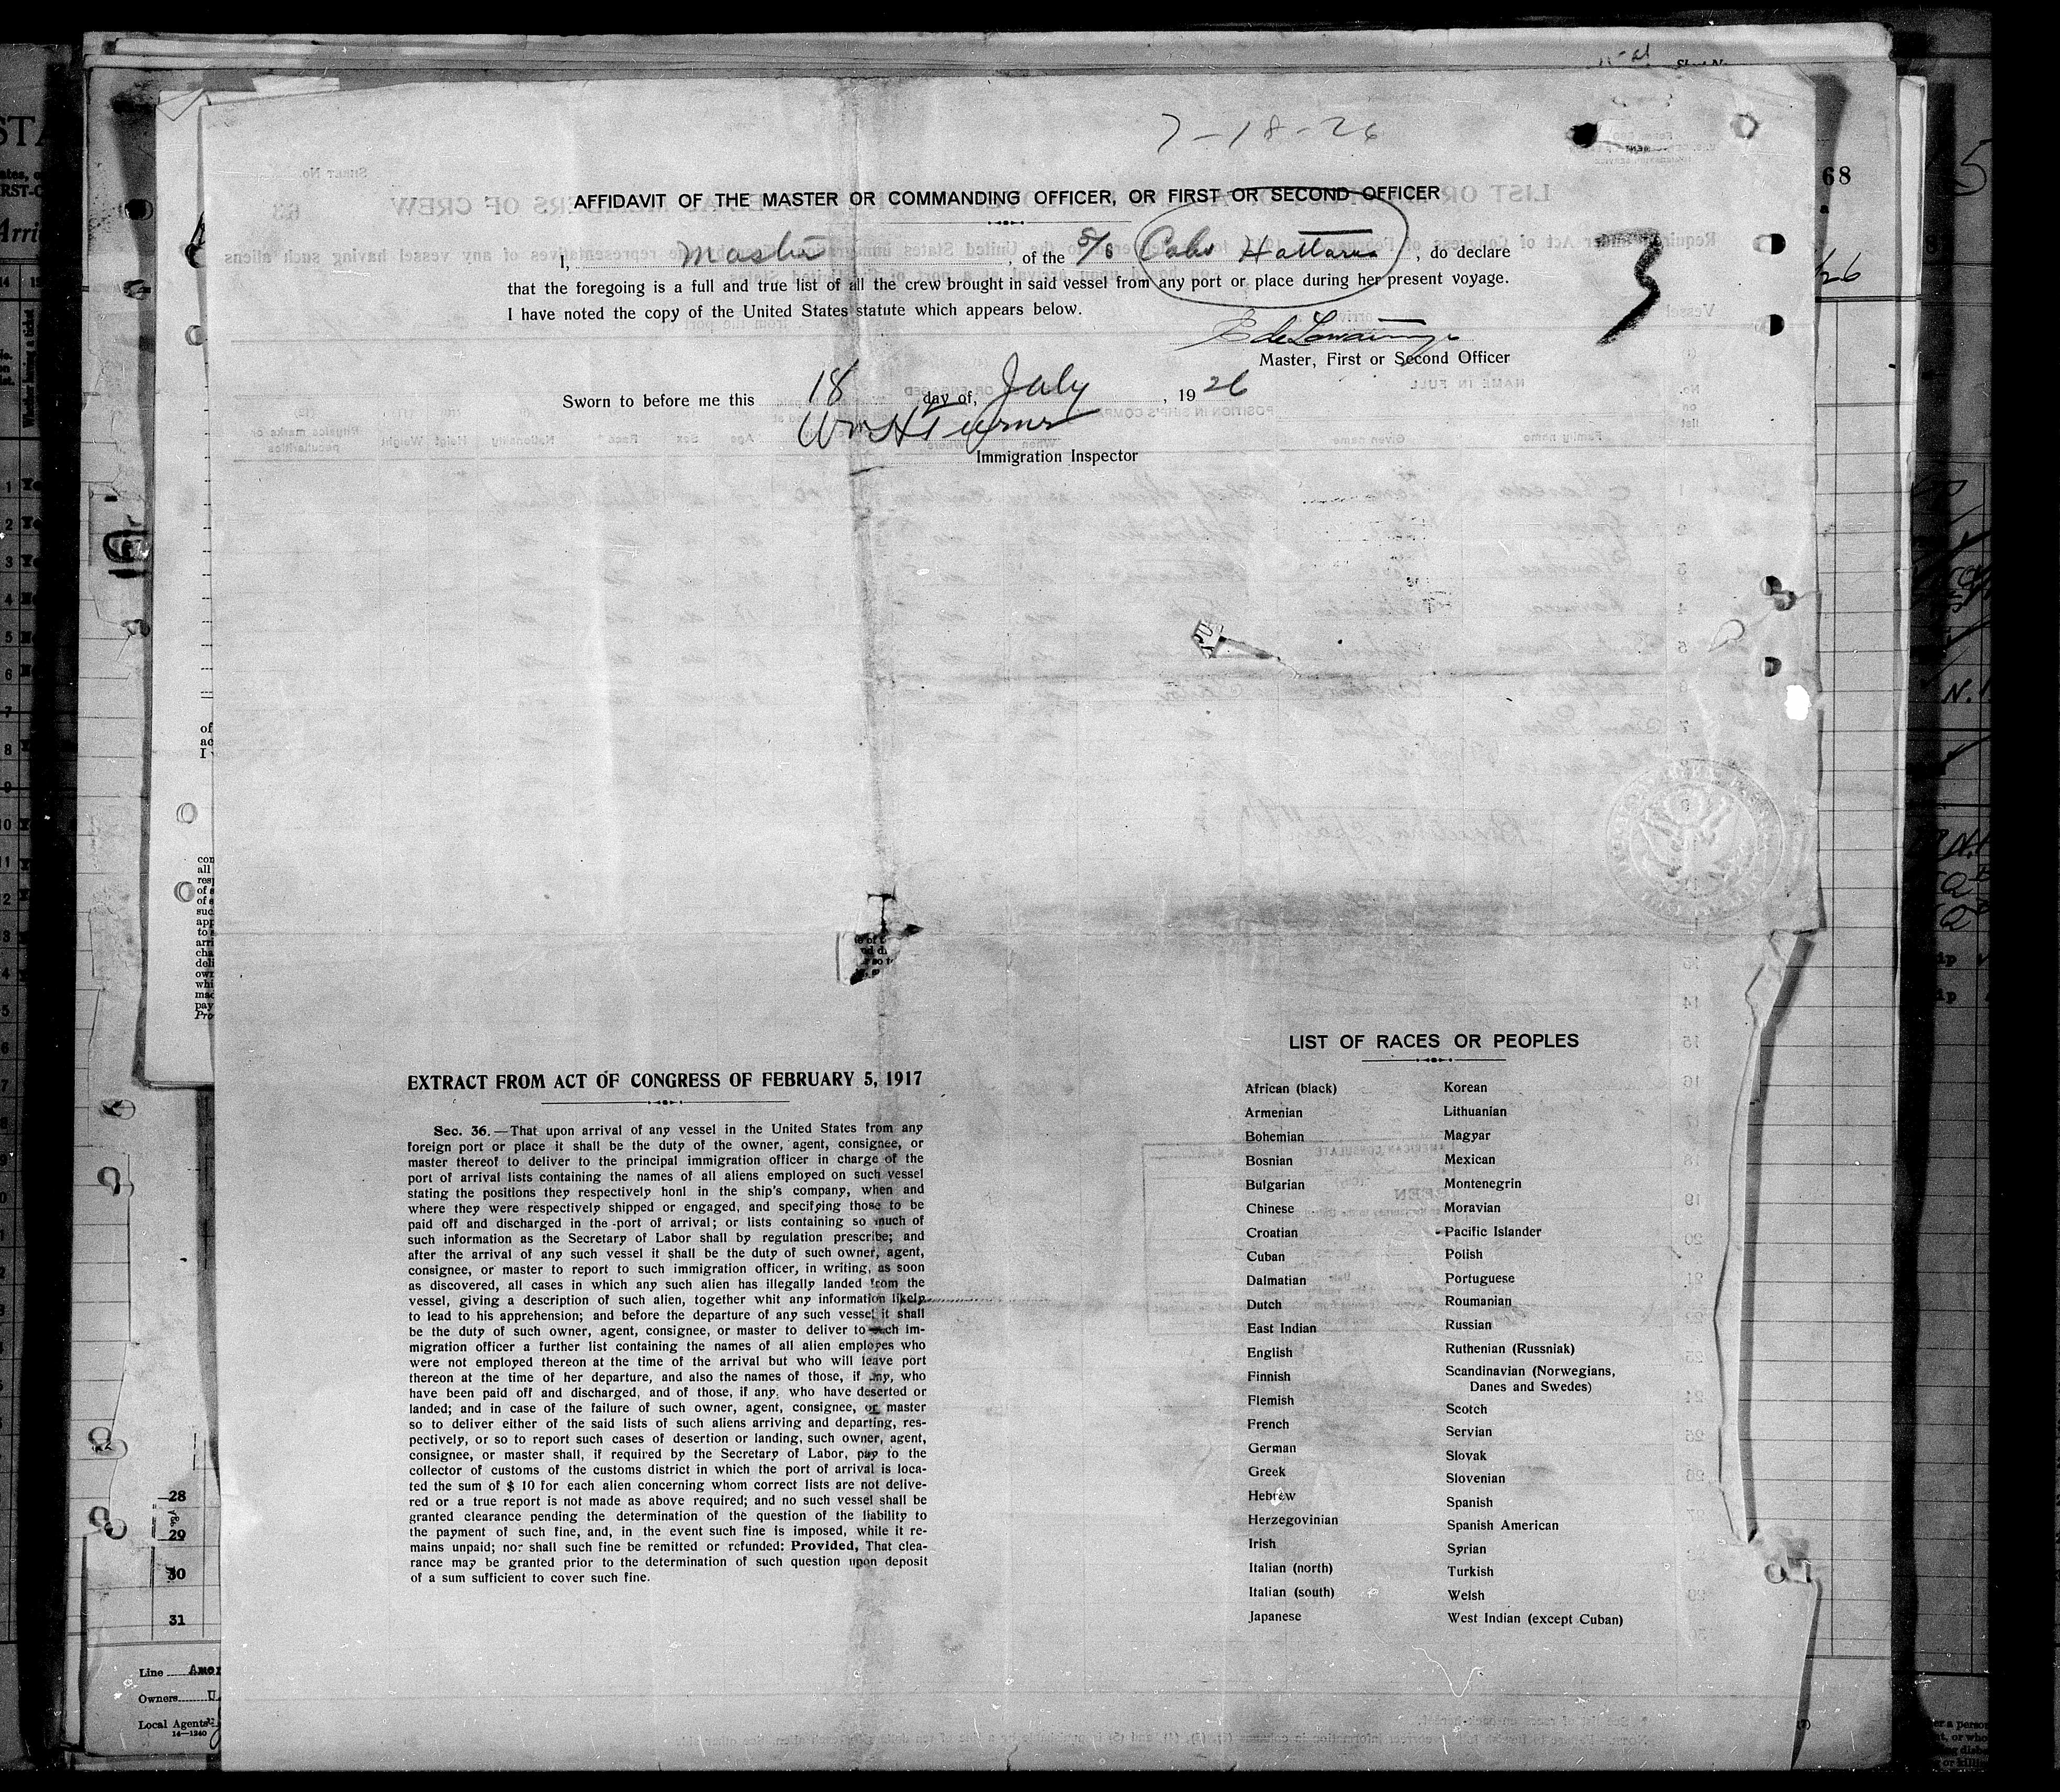 7-18-26
AFFIDAVIT OF THE MASTER OR COMMANDING OFFICER, OR FIRST OR SECOND OFFICER
I, Master, of the S/S Cabo Hatteras, do declare
that the foregoing is a full and true list of all the crew brought in said vessel from any port or place during her present voyage.
I have noted the copy of the United States statute which appears below.
3
Master, First or Second Officer
Sworn to before me this 18 day of, July, 1926
Wm H Turner
Immigration Inspector
68
EXTRACT FROM ACT OF CONGRESS OF FEBRUARY 5, 1917
Sec. 36.—That upon arrival of any vessel in the United States from any
foreign port or place it shall be the duty of the owner, agent, consignee, or
master thereof to deliver to the principal immigration officer in charge of the
port of arrival lists containing the names of all aliens employed on such vessel
stating the positions they respectively honl in the ship's company, when and
where they were respectively shipped or engaged, and specifying those to be
paid off and discharged in the port of arrival; or lists containing so much of
such information as the Secretary of Labor shall by regulation prescribe; and
after the arrival of any such vessel it shall be the duty of such owner, agent,
consignee, or master to report to such immigration officer, in writing, as soon
as discovered, all cases in which any such alien has illegally landed from the
vessel, giving a description of such alien, together whit any information likely
to lead to his apprehension; and before the departure of any such vessel it shall
be the duty of such owner, agent, consignee, or master to deliver to such im-
migration officer a further list containing the names of all alien employes who
were not employed thereon at the time of the arrival but who will leave port
thereon at the time of her departure, and also the names of those, if any, who
have been paid off and discharged, and of those, if any, who have deserted or
landed; and in case of the failure of such owner, agent, consignee, or master
so to deliver either of the said lists of such aliens arriving and departing, res-
pectively, or so to report such cases of desertion or landing, such owner, agent,
consignee, or master shall, if required by the Secretary of Labor, pay to the
collector of customs of the customs district in which the port of arrival is loca-
ted the sum of $ 10 for each alien concerning whom correct lists are not delive-
red or a true report is not made as above required; and no such vessel shall be
granted clearance pending the determination of the question of the liability to
the payment of such fine, and, in the event such fine is imposed, while it re-
mains unpaid; nor shall such fine be remitted or refunded: Provided, That clea-
rance may be granted prior to the determination of such question upon deposit
of a sum sufficient to cover such fine.
LIST OF RACES OR PEOPLES
African (black)
Armenian
Bohemian
Bosnian
Bulgarian
Chinese
Croatian
Cuban
Dalmatian
Dutch
East Indian
English
Finnish
Flemish
French
German
Greek
Hebrew
Herzegovinian
Irish
Italian (north)
Italian (south)
Japanese
Korean
Lithuanian
Magyar
Mexican
Montenegrin
Moravian
Pacific Islander
Polish
Portuguese
Roumanian
Russian
Ruthenian (Russniak)
Scandinavian (Norwegians,
Danes and Swedes)
Scotch
Servian
Slovak
Slovenian
Spanish
Spanish American
Syrian
Turkish
Welsh
West Indian (except Cuban)
28
29
30
31
Line
Owners
Local Agents
14—1240